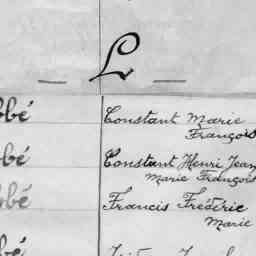 L
bbé Constant Marie
François
bbé Constant Henri Jean
Marie François
bbé Francis Fréderic
Marie
bé